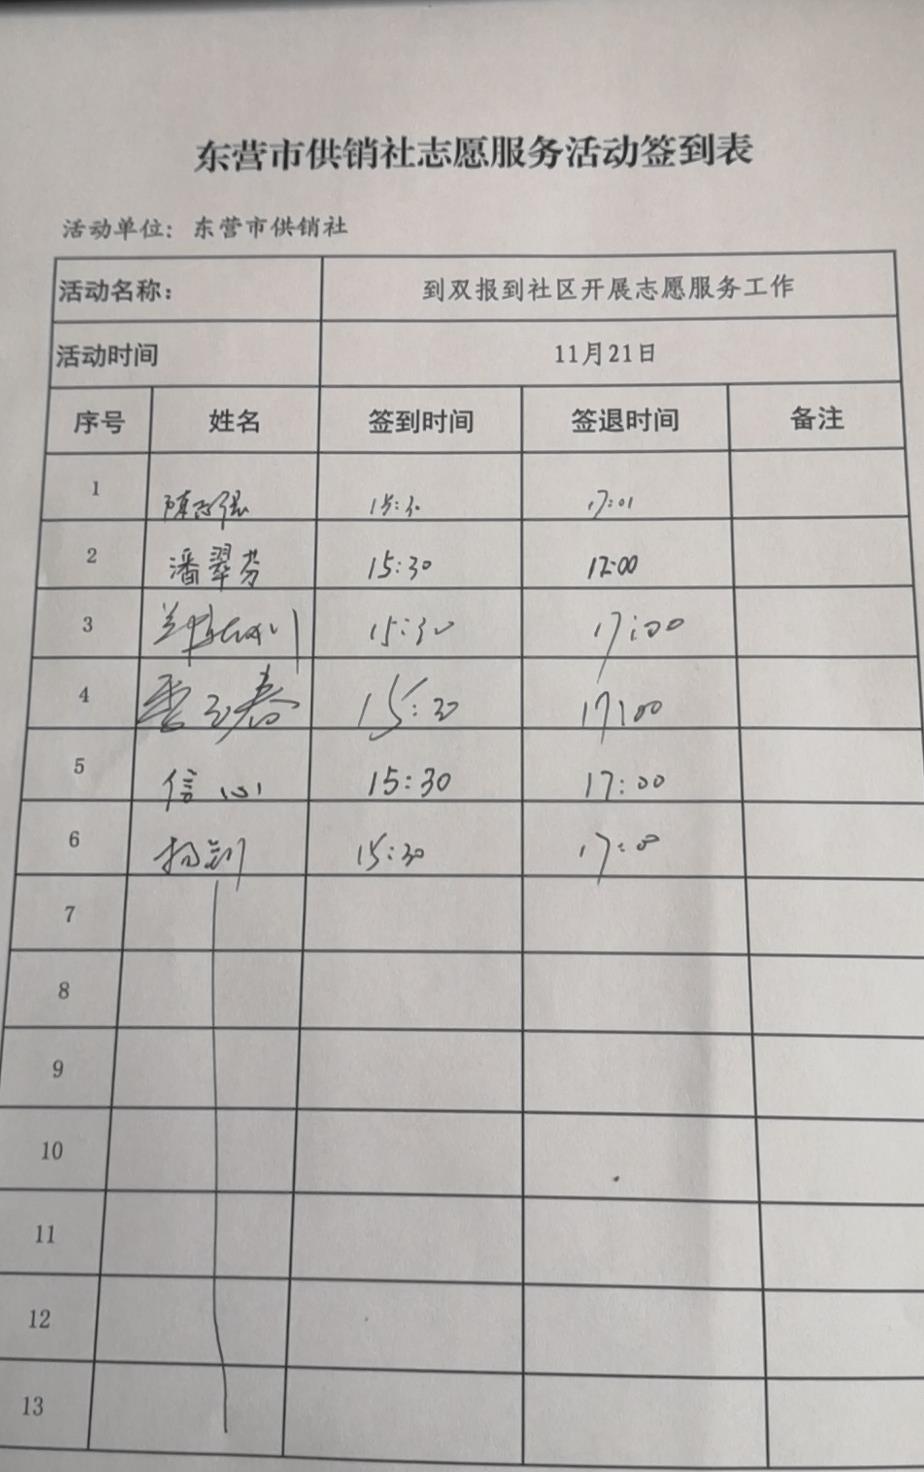 东营市供销社志愿服务活动签到表
活动单位：东营市供销社
活动名称： 到双报到社区开展志愿服务工作
活动时间 11月21日
序号 姓名 签到时间 签退时间 备注
1 陈志强 15:30 17:01
2 潘翠芬 15:30 17:00
3 15:30 17:00
4 15:30 17:00
5 信心 15:30 17:00
6 杨剑 15:30 17:00
7
8
9
10
11
12
13